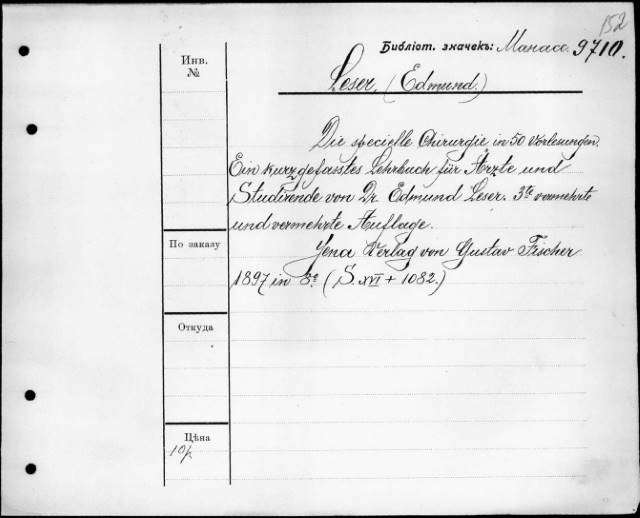 152
Библіот. значекъ: Манасс. 9710.
Инв.
№
Leser, (Edmund.)
Die specielle Chirurgie in 50 Vorlesungen.
Ein kurzgefasstes Lehrbuch für Ärzte und
Studirende von Dr. Edmund Leser. 3te vermehrte
und vermehrte Auflage.
По заказу
Jena Verlag von Gustav Fischer
1897 in 8° (S. XVI + 1082.)
Откуда
Цѣна
10р.